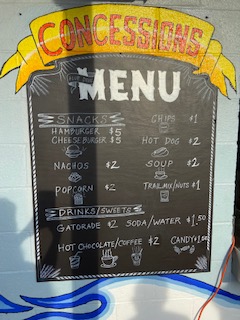 CONCESSIONS
MENU
SNACKS
CHIPS $1
HAMBURGER $5
CHEESEBURGER $5
HOT DOG $2
NACHOS $2
SOUP $2
POPCORN $2
TRAIL MIX/NUTS $1
DRINKS/SWEETS
GATORADE $2 SODA/WATER $1.50
HOT CHOCOLATE/COFFEE $2 CANDY $1.50